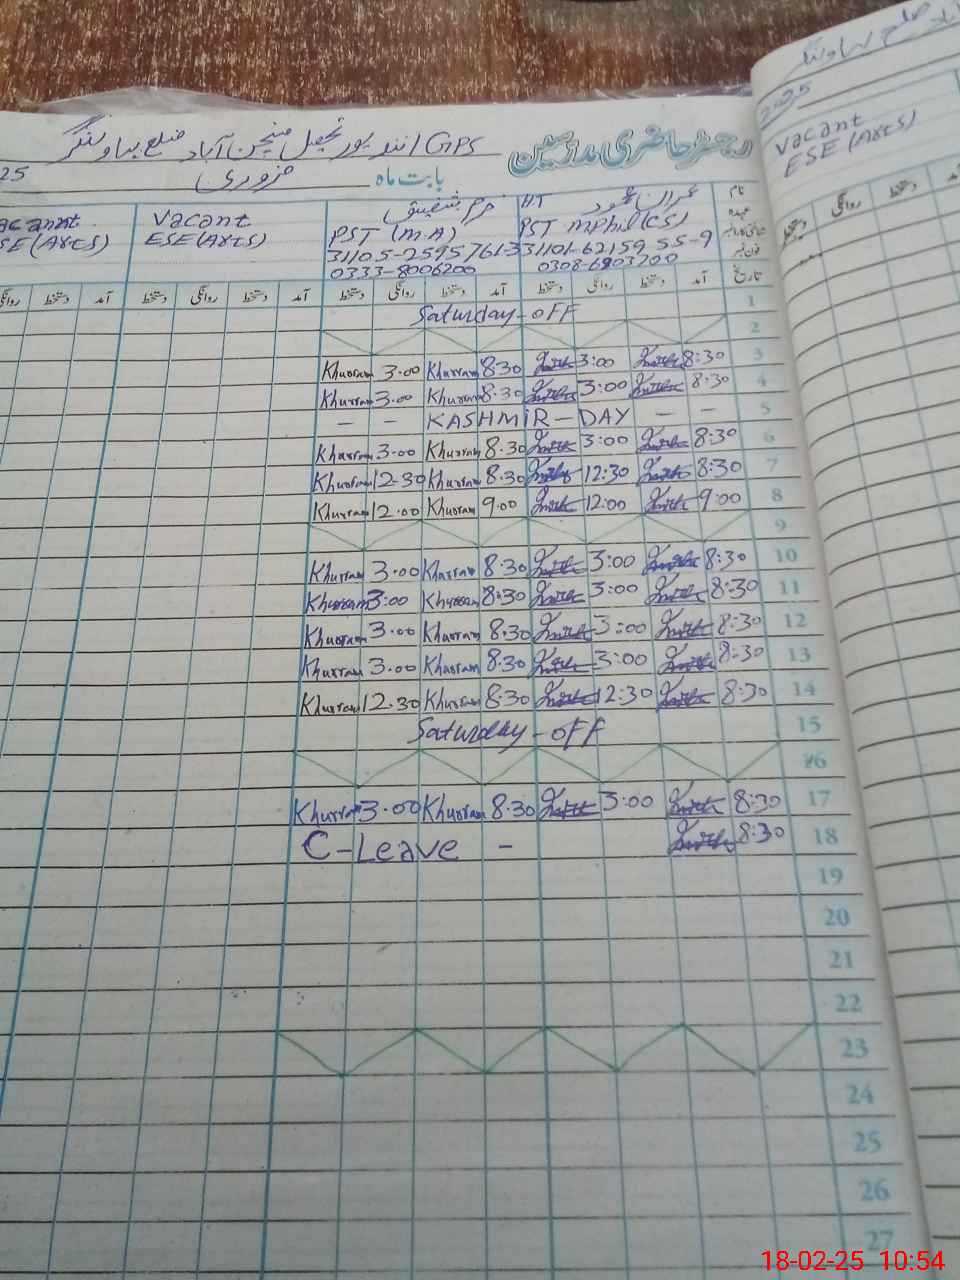 رجسٹر حاضری مدرسین
GPS انند پور تحصیل منچن آباد ضلع بہاولنگر
بابت ماہ فروری 25
نام عمران محمود HT خرم شفیق Vacant Vacant
عہدہ PST MPhil (CS) PST (M.A) ESE (Arts) ESE (Arts)
شناختی کارڈ نمبر 31101-6215955-9 31105-2595761-3
فون نمبر 0333-8006200
تاریخ آمد دستخط روانگی دستخط آمد دستخط روانگی دستخط آمد دستخط روانگی دستخط آمد دستخط روانگی
1 Saturday-OFF
2
3 8:30 3:00 8.30 Khurram 3.00 Khurram
4 8:30 3:00 8.30 Khurram 3.00 Khurram
5 - - KASHMIR - DAY - -
6 8:30 3:00 8.30 Khurram 3.00 Khurram
7 8:30 12:30 8.30 Khurram 12.30 Khurram
8 9:00 12:00 9.00 Khurram 12.00 Khurram
9
10 8:30 3:00 8.30 Khurram 3.00 Khurram
11 8:30 3:00 8.30 Khurram 3:00 Khurram
12 8:30 3:00 8.30 Khurram 3.00 Khurram
13 8:30 3:00 8.30 Khurram 3.00 Khurram
14 8:30 12:30 8.30 Khurram 12.30 Khurram
15 Saturday-OFF
16
17 8:30 3:00 8.30 Khurram 3.00 Khurram
18 8:30 C-Leave -
19
20
21
22
23
24
25
26
27
ضلع بہاولنگر
2025
Vacant
ESE (Arts)
دستخط روانگی دستخط آمد
18-02-25 10:54